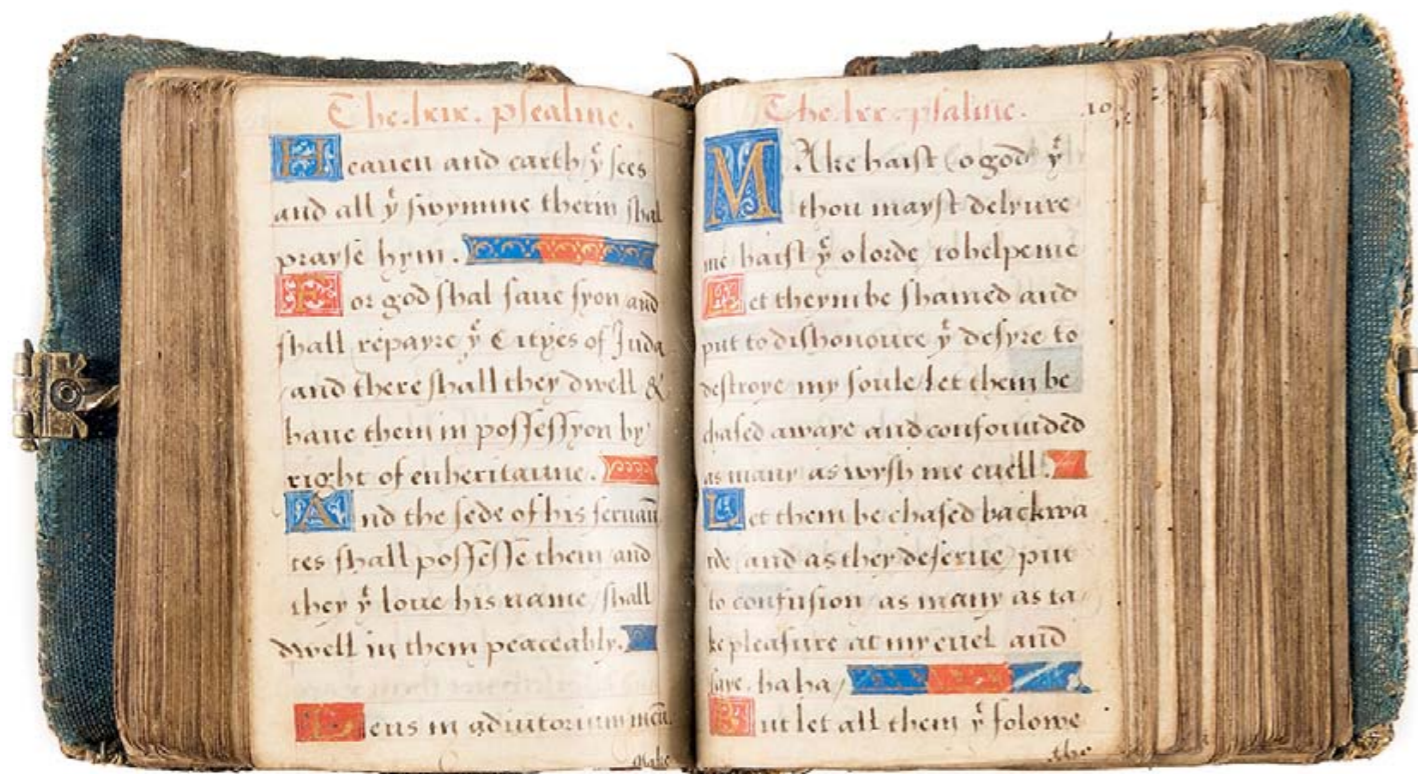 The .lxix. psealme.
Heauen and earth yͤ sees
and all yͭ swymme therin shal
prayse hym.
For god shal saue syon and
shall repayre yͤ Cityes of Juda
/and there shall they dwell &
haue them in possessyon by
right of enheritaunce.
And the sede of his seruaū
tes shall possesse them/and
they yͭ loue his name/shall
dwell in them peaceably.
Deus in adiutorium meū.
make
The .lxx. psalme.
10
MAke haist (o god) yͭ
thou mayst delyure
me haist yͤ o lorde/to helpe me
Let theym be shamed and
put to dishonoure yͭ desyre to
destroye my soule/let them be
chased awaye and confounded
as many as wysh me euell.
Let them be chased backwa
rde/and as they deserue put
to confusion/as many as ta/
ke pleasure at my euel and
saye. ha ha/
But let all them yͭ folowe
the